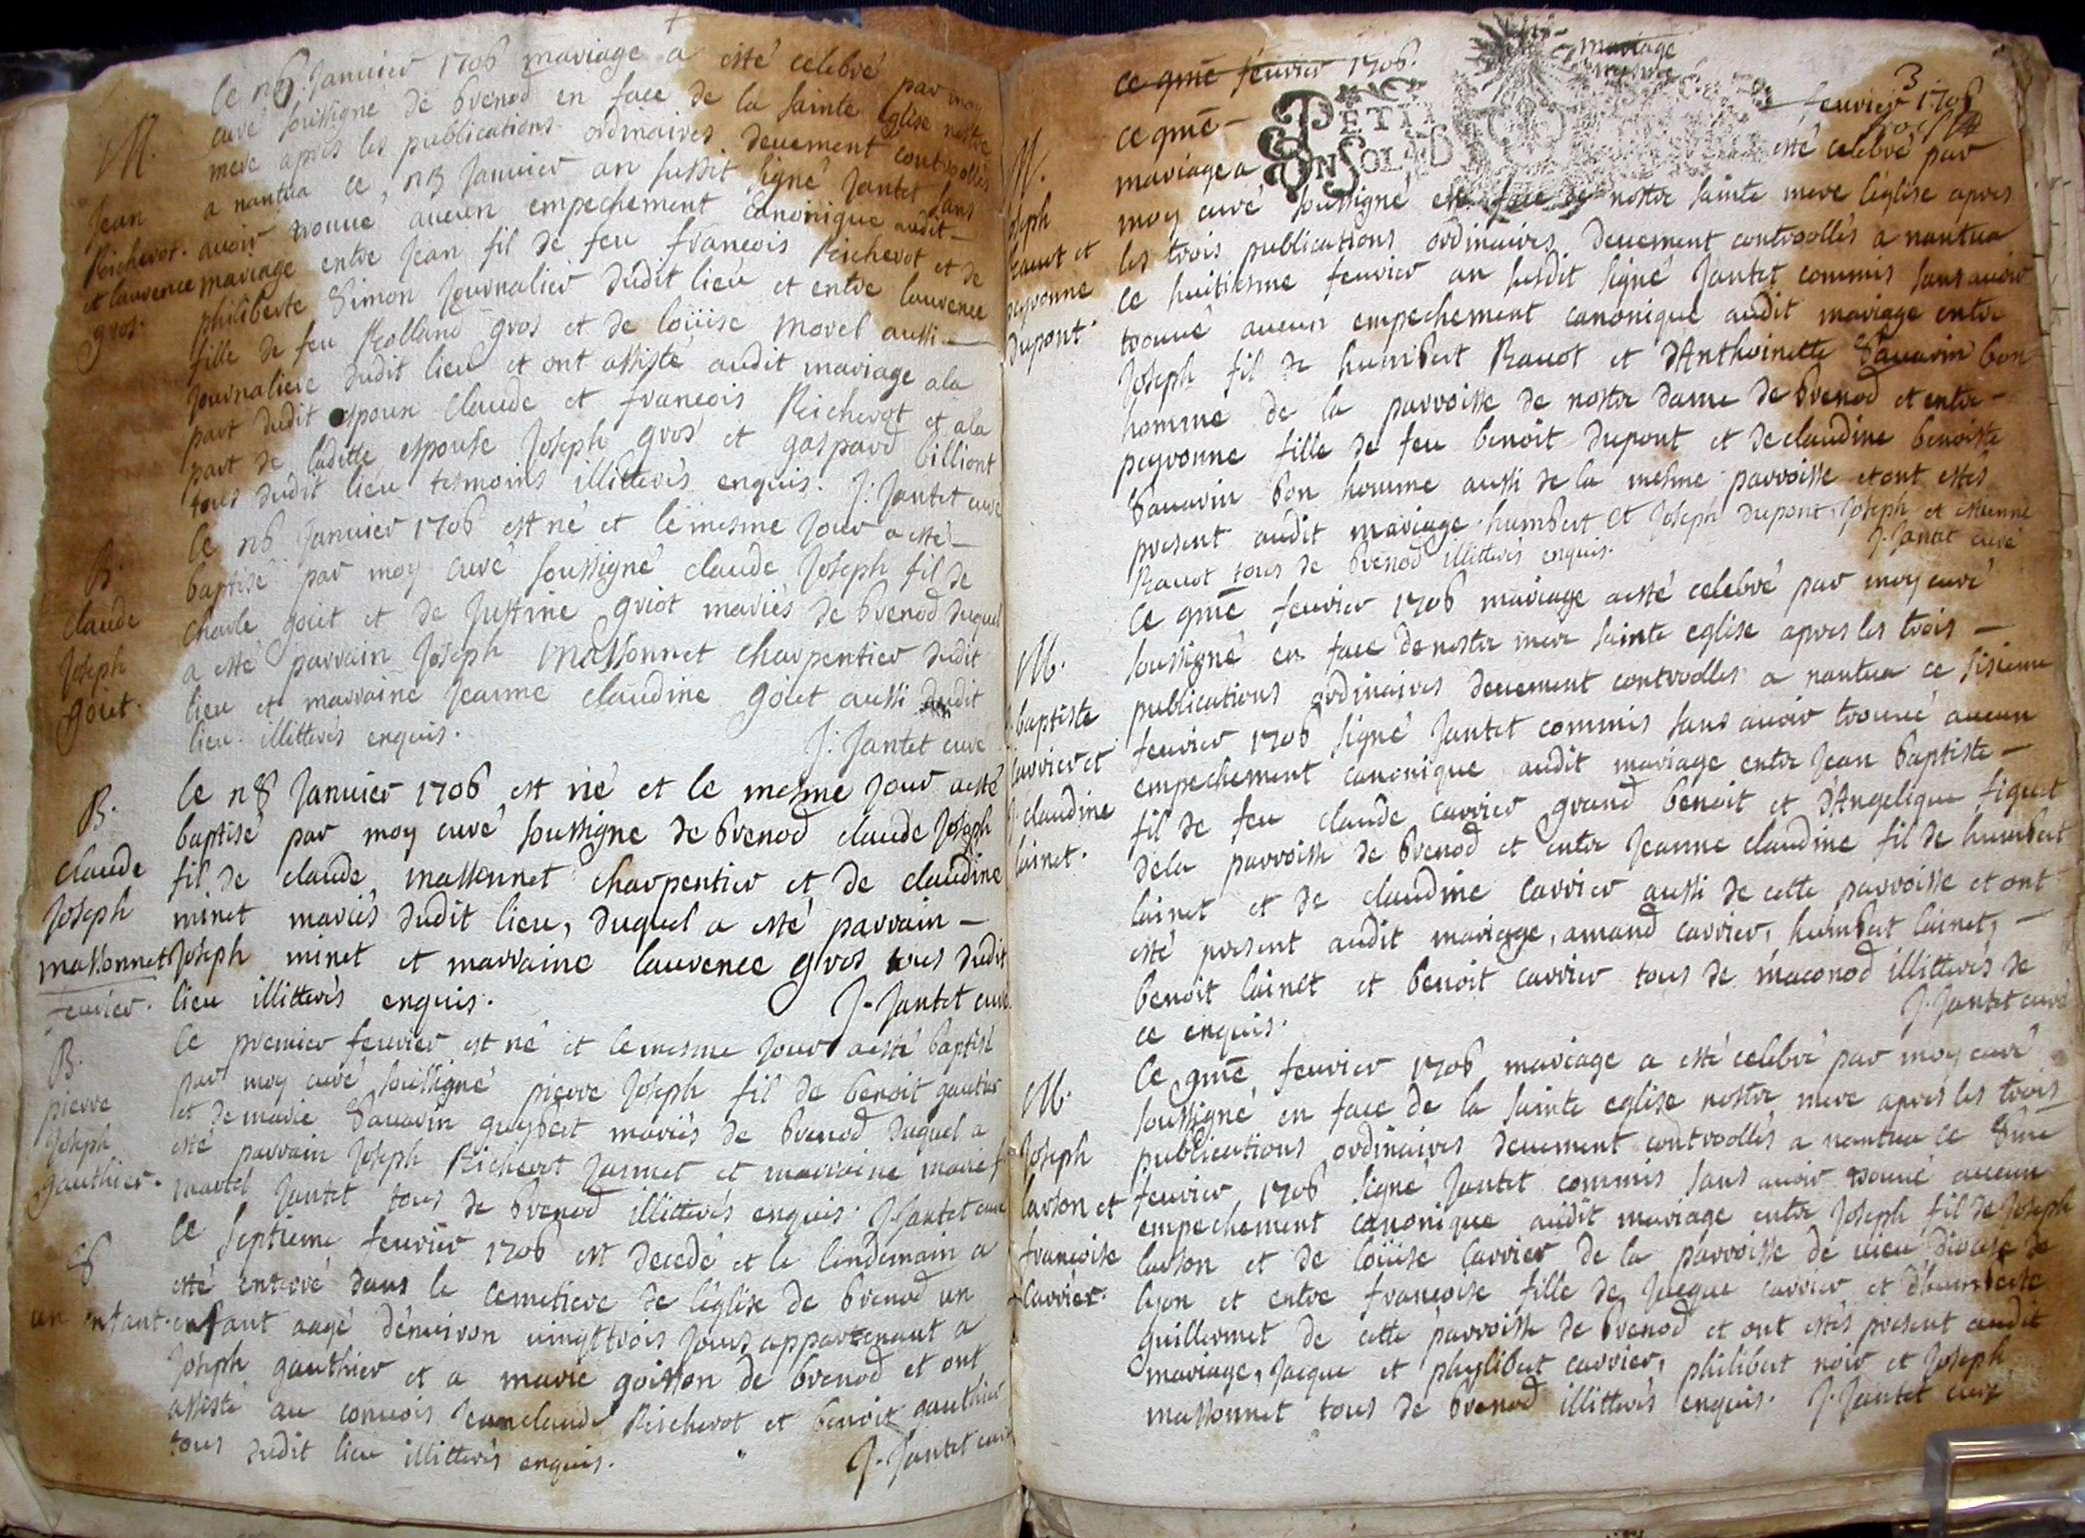 Ce 26 Janvier 1706 mariage a esté celebré par moy
curé soussigné de brenod en face de la sainte Eglise nostre
mere apres les publications ordinaires deuement controollés
a nantua ce, Janvier an susdit signé Jantet sans
avoir trouué aucun empechement canonique audit –
mariage entre Jean fil de feu francois Richerot et de
philiberte Simon Journalier dudit lieu et entre laurence
fille de feu Rolland gros et de loüise morel aussi –
Journaliere dudit lieu et ont assisté audit mariage a la
part dudit espoux claude et francois Richerot et a la
part de laditte espouse Joseph gros et gaspard billiont
tous dudit lieu tesmoins illitterés enquis. J. Jantet curé
M.
Jean
Richerot.
et laurence
gros.
Ce 26 Janvier 1706 est né et le mesme jour a esté –
baptisé par moy curé soussigné claude Joseph fil de
charle goiet et de Justine griot mariés de brenod duquel
a esté parrain Joseph massonnet charpentier dudit
lieu et marraine Jeanne claudine goiet aussi dudit
lieu illitterés enquis.
J. Jantet curé
B.
claude
Joseph
goiet.
Ce 28 Janvier 1706 est né et le mesme jour a esté
baptisé par moy curé soussigné de brenod claude Joseph
fil de claude massonnet charpentier et de claudine
minet mariés dudit lieu, duquel a esté parrain –
Joseph minet et marraine laurence gros tous dudit
lieu illitterés enquis.
J. Jantet curé
B.
claude
Joseph
massonnet
feurier.
Ce premier feurier est né et le mesme jour a esté baptisé
par moy curé soussigné pierre Joseph fil de benoit gautier
et de marie Sauarin guybert mariés de brenod duquel a
esté parrain Joseph Richerot Jannet et marraine marie f
martel Jantet tous de brenod illitterés enquis. J. Jantet curé
B.
pierre
Joseph
gauthier.
Ce septieme feurier 1706 est decedé et le lendemain a
esté enterré dans le cemetiere de l'église de brenod un
enfant aagé d'enuiron uingttrois jours appartenant a
Joseph gauthier et a marie goisson de brenod et ont
assisté au conuois Jeanclaude Richerot et benoit gauthier
tous dudit lieu illitterés enquis.
J. Jantet curé
un enfant.
ce qme feurier 1706.
mariage
3
ce qme –
feurier 1706
PETIT
mariage a
esté celebré par
moy curé soussigné en face de nostre sainte mere l'église apres
les trois publications ordinaires deuement controollés a nantua
ce huitiesme feurier an susdit signé Jantet commis sans auoir
trouué aucun empechement canonique audit mariage entre
Joseph fil de humbert Rauot et d'Anthoinette Sauarin bon
homme de la parroisse de nostre dame de brenod et entre –
peyronne fille de feu benoit dupont et de claudine benoiste
Sauarin bon homme aussi de la mesme parroisse et ont estés
present audit mariage humbert et Joseph dupont Joseph et estienne
Rauot tous de brenod illitterés enquis.
J. Jantet curé
M.
Joseph
Rauot et
peyronne
dupont.
Ce qme feurier 1706 mariage a esté celebré par moy curé
soussigné en face de nostre mere sainte eglise apres les trois –
publications ordinaires deuement controollés a nantua ce sisieme
feurier 1706 signé Jantet commis sans auoir trouué aucun
empechement canonique audit mariage entre Jean baptiste –
fil de feu claude carrier grand benoit et d'Angelique figuet
de la parroisse de brenod et entre Jeanne claudine fil de humbert
lainet et de claudine carrier aussi de cette parroisse et ont
esté present audit mariage, amand carrier, humbert lainet, –
benoit lainet et benoit carrier tous de maconod illitterés de
ce enquis.
J. Jantet curé
M.
baptiste
carrier et
J. claudine
lainet.
Ce qme feurier 1706 mariage a esté celebré par moy curé
soussigné en face de la sainte eglise nostre mere apres les trois
publications ordinaires deuement controollés a nantua ce 8me
feurier 1706 signé Jantet commis sans auoir trouué aucun
empechement canonique audit mariage entre Joseph fil de Joseph
larson et de loüise carrier de la parroisse de uieu diocese de
lyon et entre francoise fille de Jacque carrier et d'humberte
guillermet de cette parroisse de brenod et ont estés present audit
mariage, Jacque et phylibert carrier, philibert noir et Joseph
massonnet tous de brenod illitterés enquis. J. Jantet curé
M.
Joseph
larson et
francoise
carrier.